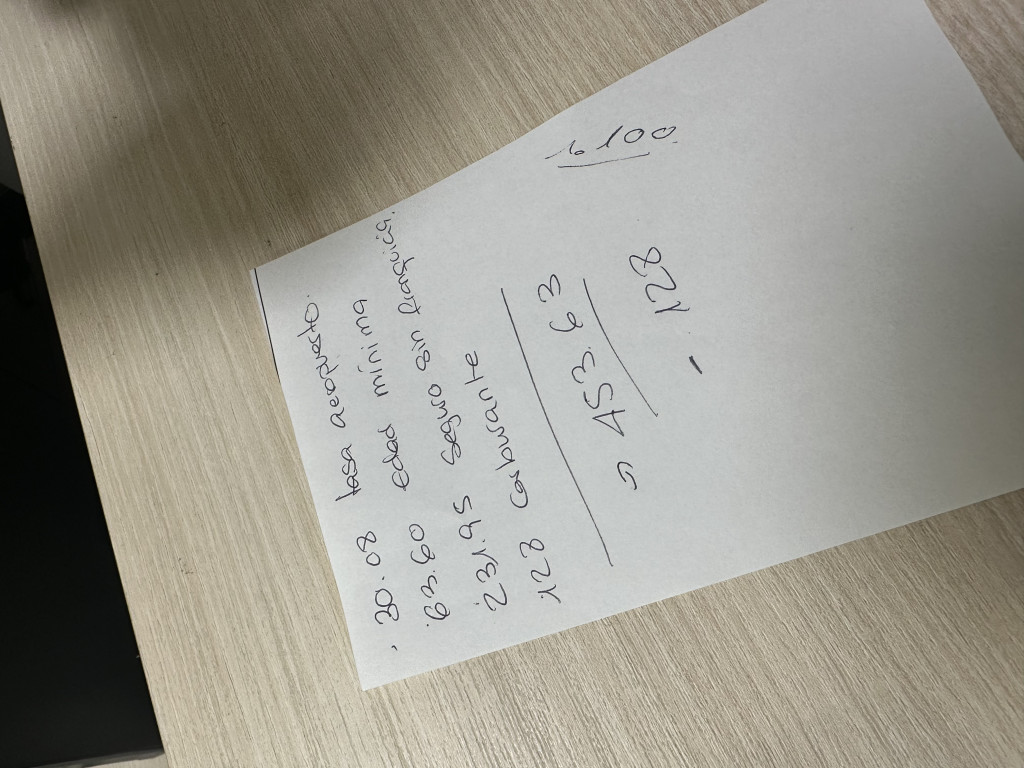 · 30.08 tasa aeropuesto.
· 63.60 edad mínima
· 231.95 seguro sin franquicia.
128 carburante
453.63
- 128
100